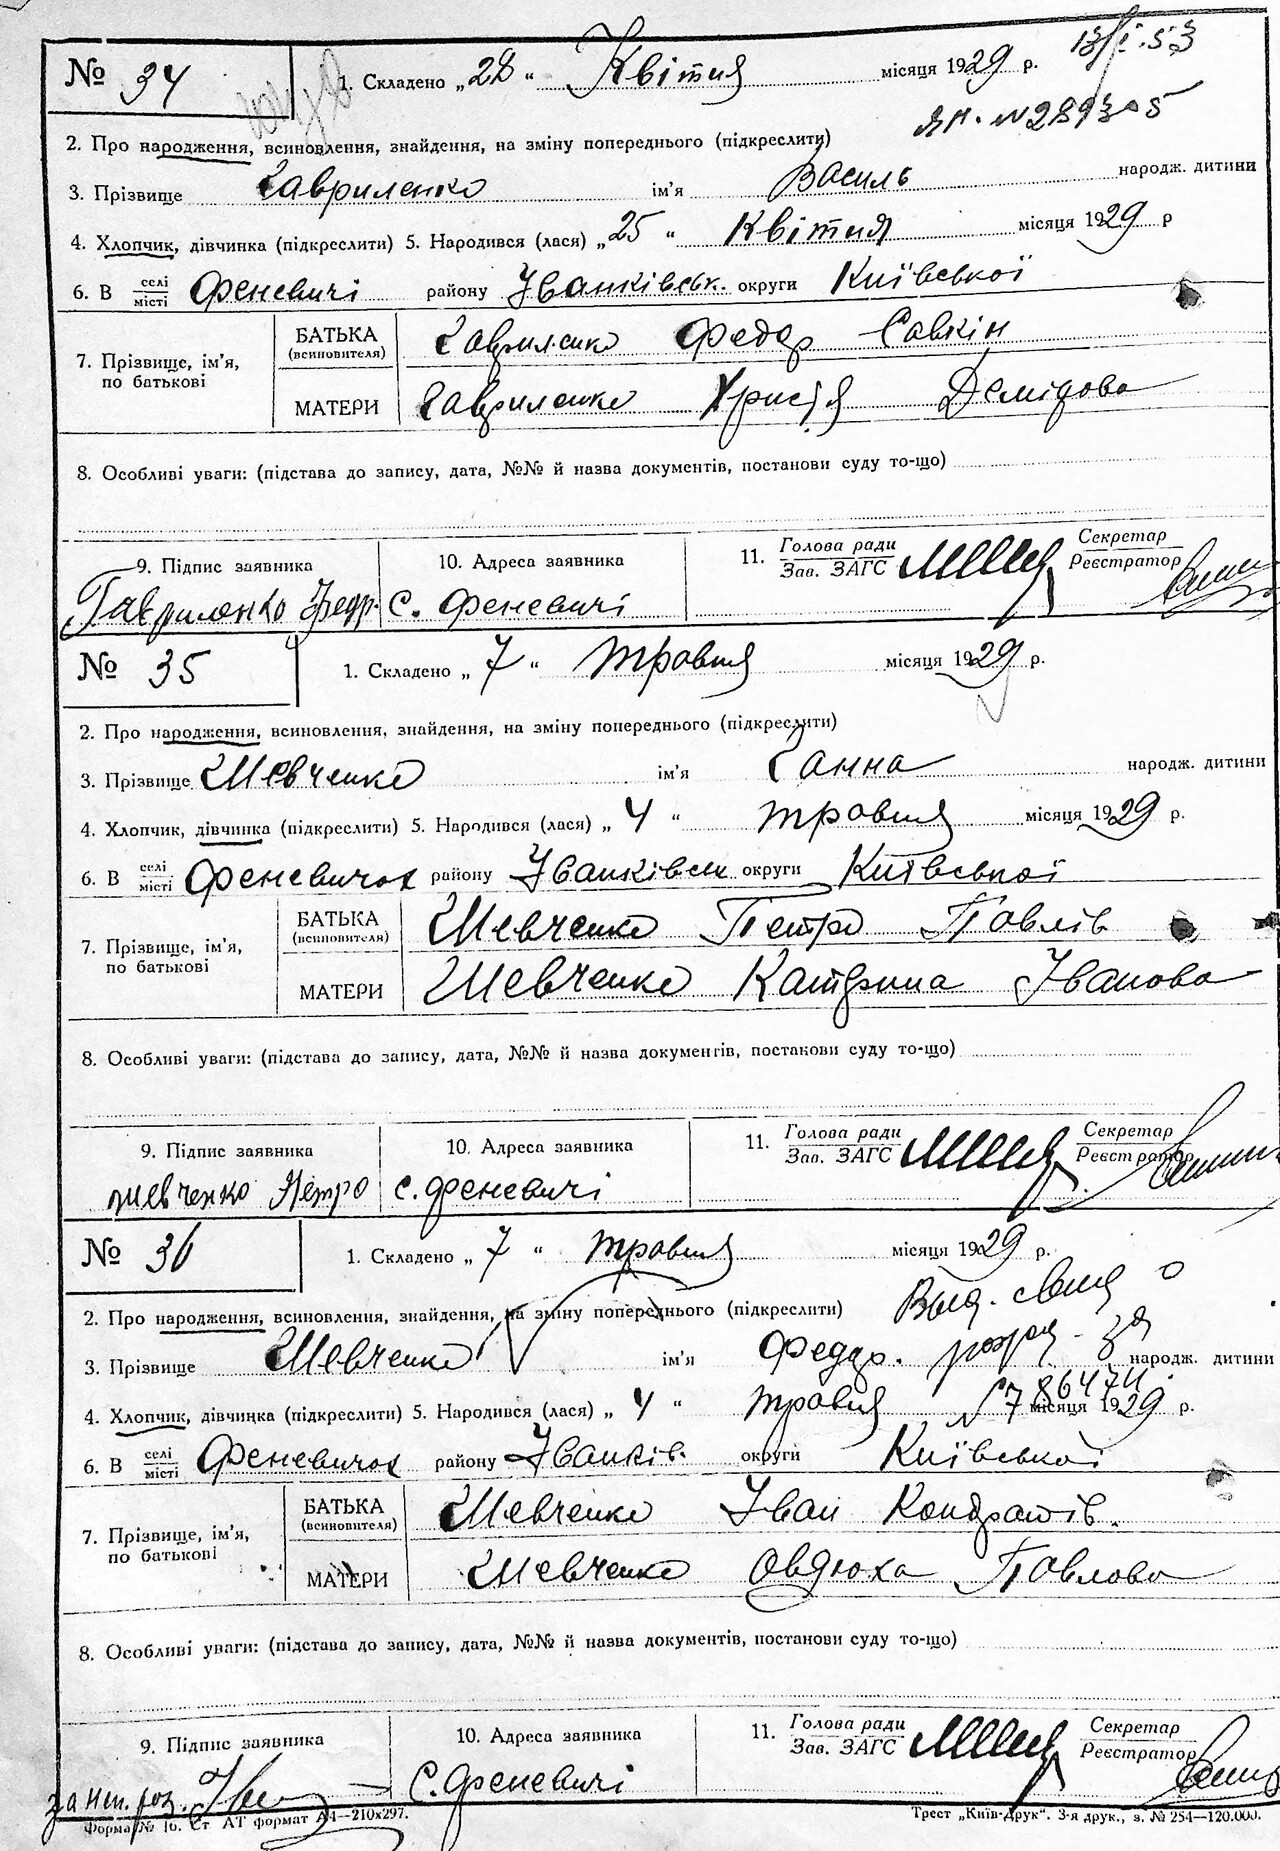 13/I.53
№ 34
1. Складено „28“ Квітня місяця 1929 р.
ЯН. №289305
2. Про народження, всиновлення, знайдення, на зміну попереднього (підкреслити)
3. Прізвище Гавриленко ім'я Василь народж. дитини
4. Хлопчик, дівчинка (підкреслити) 5. Народився (лася) „25“ Квітня місяця 1929 р
6. В селі/місті Феневичі району Іванківськ. округи Київської
7. Прізвище, ім'я, по батькові
БАТЬКА (всиновителя) Гавриленко Федор Савкін
МАТЕРИ Гавриленко Христя Демідова
8. Особливі уваги: (підстава до запису, дата, №№ й назва документів, постанови суду то-що)
9. Підпис заявника
10. Адреса заявника
11. Голова ради
Зав. ЗАГС
Секретар
Реєстратор
Гавриленко Федр.
с. Феневичі
№ 35
1. Складено „7“ травня місяця 1929 р.
2. Про народження, всиновлення, знайдення, на зміну попереднього (підкреслити)
3. Прізвище Шевченко ім'я Ганна народж. дитини
4. Хлопчик, дівчинка (підкреслити) 5. Народився (лася) „4“ травня місяця 1929 р.
6. В селі/місті Феневичах району Іванківськ округи Київської
7. Прізвище, ім'я, по батькові
БАТЬКА (всиновителя) Шевченко Петро Павлів
МАТЕРИ Шевченко Катрина Іванова
8. Особливі уваги: (підстава до запису, дата, №№ й назва документів, постанови суду то-що)
9. Підпис заявника
10. Адреса заявника
11. Голова ради
Зав. ЗАГС
Секретар
Реєстратор
шевченко Петро
с. Феневичі
№ 36
1. Складено „7“ травня місяця 1929 р.
2. Про народження, всиновлення, знайдення, на зміну попереднього (підкреслити)
Выд. свид о
3. Прізвище Шевченко ім'я Феддр. народж. дитини
4. Хлопчик, дівчинка (підкреслити) 5. Народився (лася) „4“ травня місяця 1929 р.
6. В селі/місті Феневичах району Іванків. округи Київської
7. Прізвище, ім'я, по батькові
БАТЬКА (всиновителя) Шевченко Іван Кондратів.
МАТЕРИ Шевченко Овдюха Павлова
8. Особливі уваги: (підстава до запису, дата, №№ й назва документів, постанови суду то-що)
9. Підпис заявника
10. Адреса заявника
11. Голова ради
Зав. ЗАГС
Секретар
Реєстратор
за неп. роз.
с. Феневичі
Форма № 1б. Ст АТ формат А4—210х297.
Трест „Київ-Друк“. 3-я друк., з. № 254—120.000.